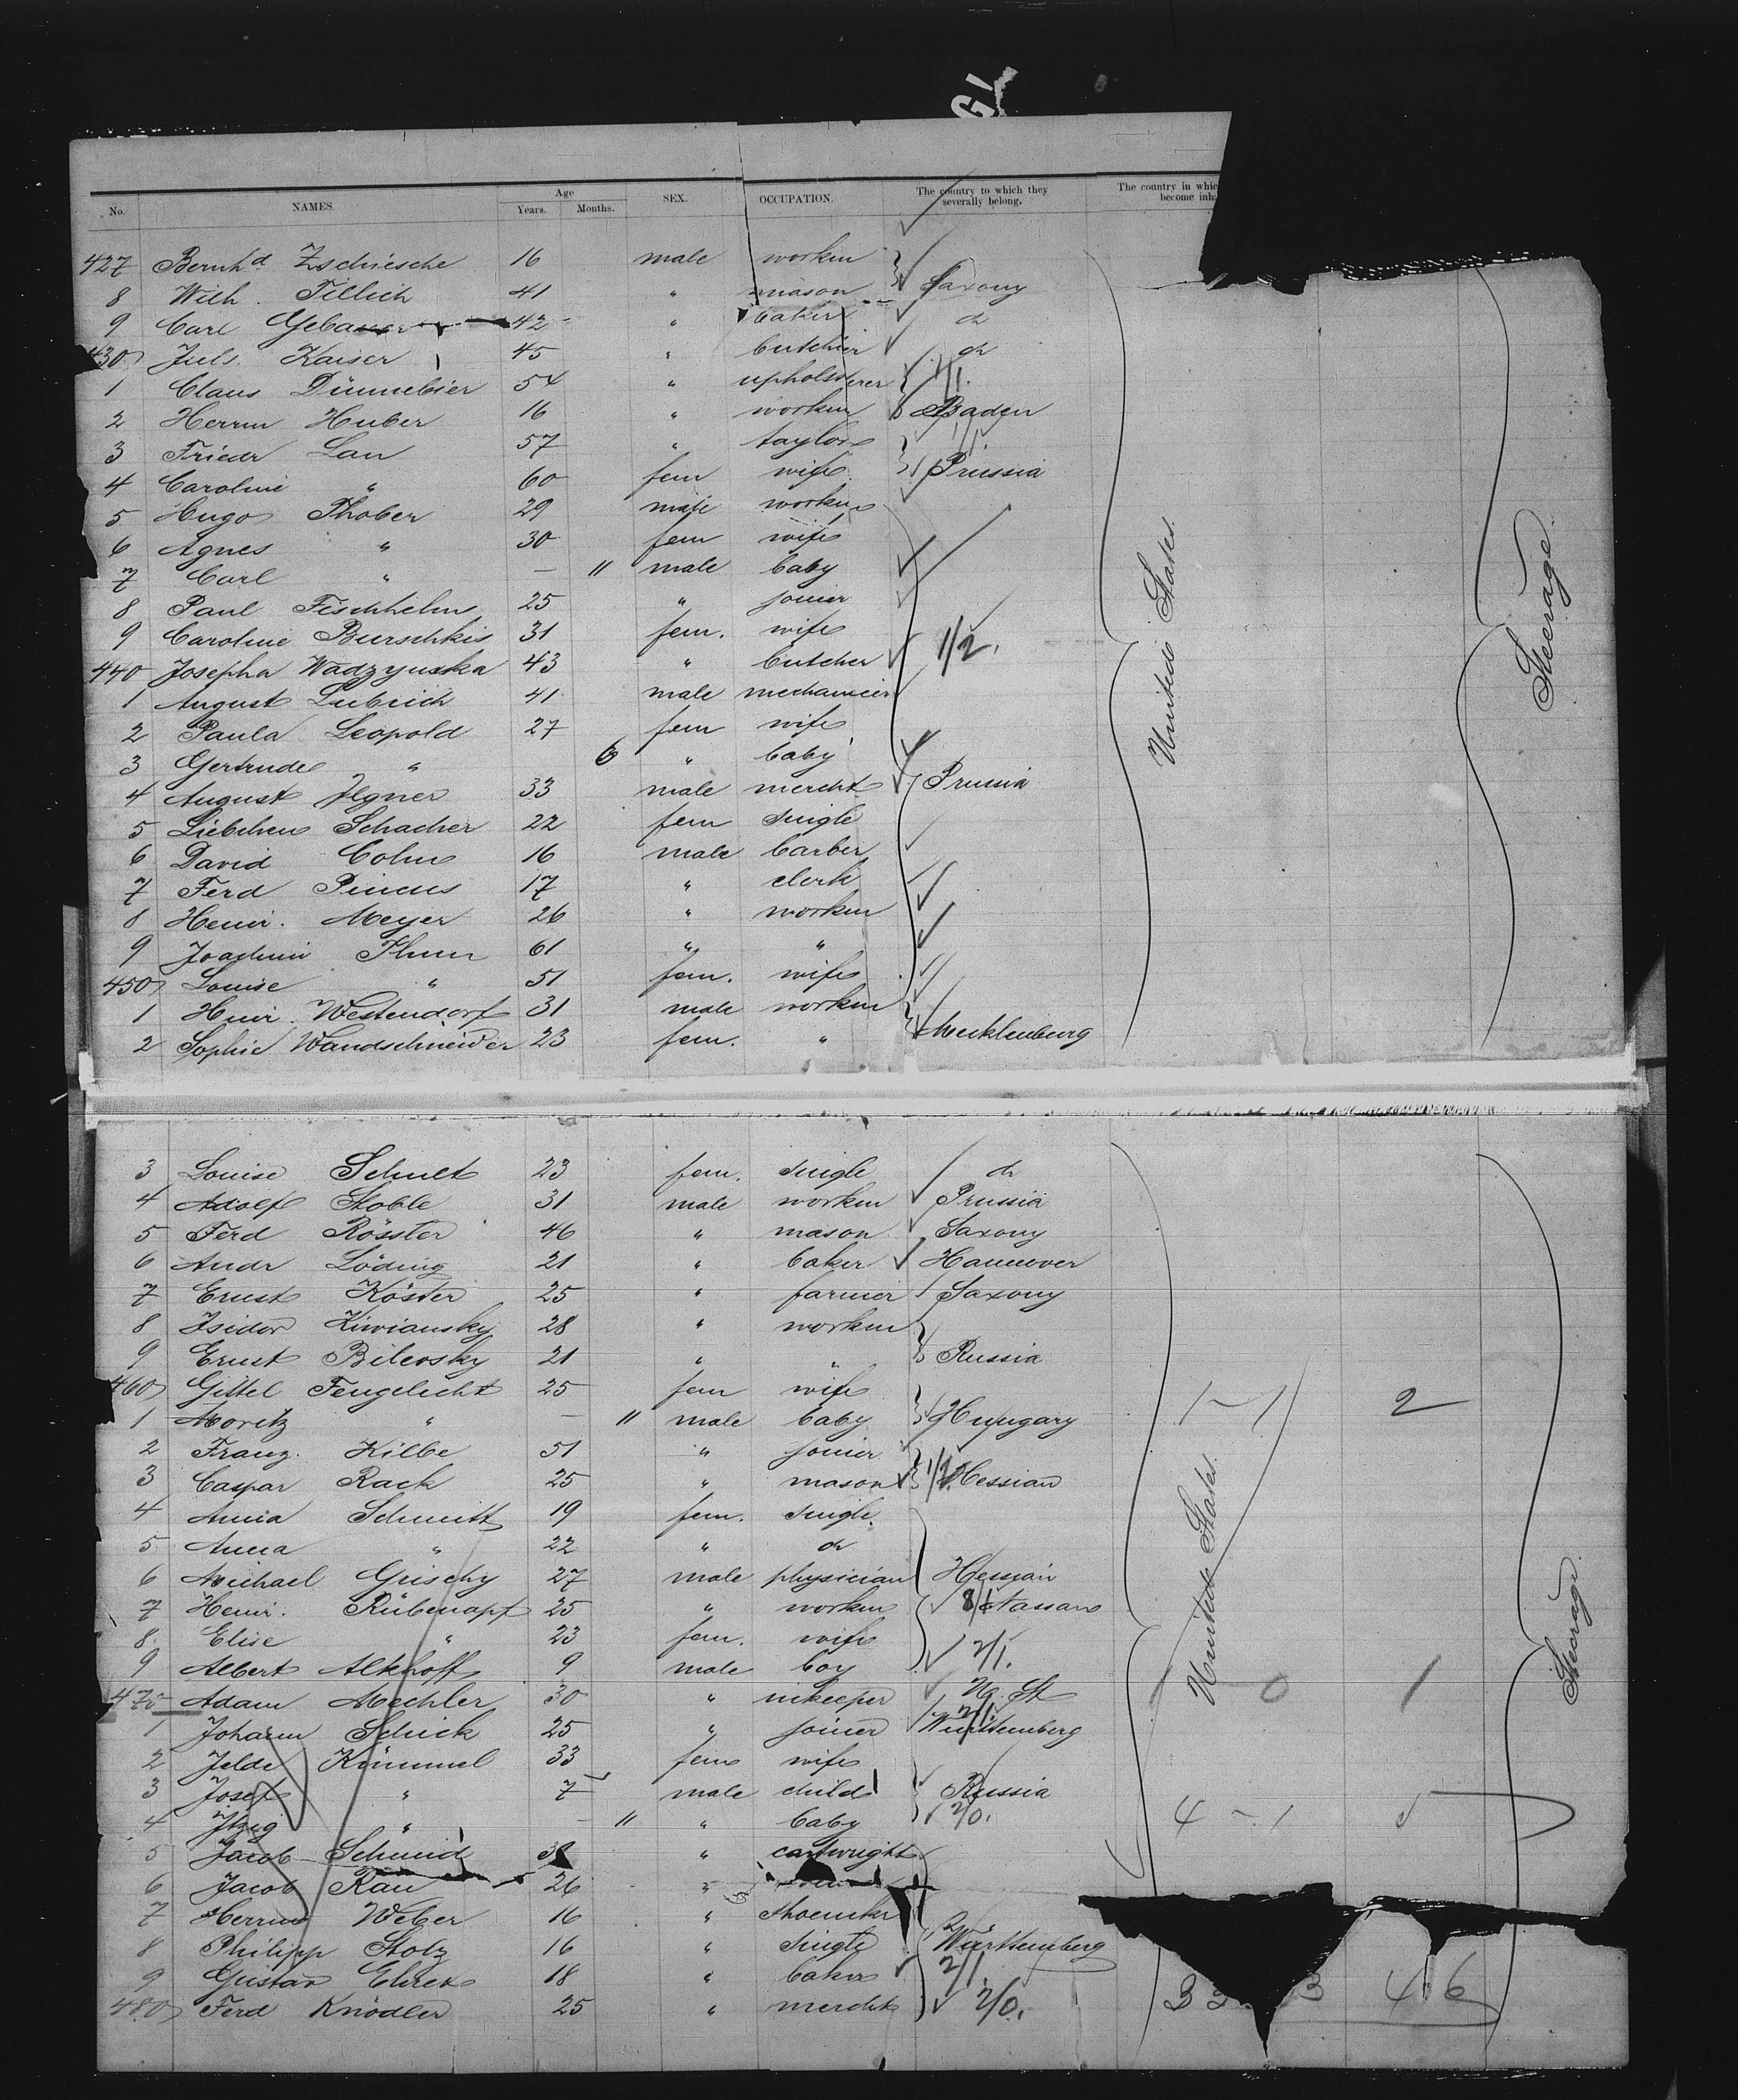 No. NAMES. Age Years. Months. SEX. OCCUPATION. The country to which they severally belong. The country in whic become inha
427 Bernhd. Zschiesche 16 male workm
8 Wilh. Tillich 41 " mason Saxony
9 Carl Gebauer 42 " baker do
430 Juls. Kaiser 45 " butcher do
1 Claus Dünnebier 54 " upholsterer 1/1.
2 Herrm Huber 16 " workm Baden
3 Friedr Lau 57 " taylor 1/1.
4 Caroline " 60 fem wife Prussia
5 Hugo Thober 29 male workm
6 Agnes " 30 fem wife
7 Carl " — 11 male baby
8 Paul Fischhelm 25 " joiner
9 Caroline Burschkis 31 fem. wife
440 Josepha Wadzynska 43 " butcher 1/2.
1 August Liebrich 41 male mechanicien
2 Paula Leopold 27 fem wife
3 Gertrude " 6 " baby
4 August Ilgner 33 male mercht Prussia
5 Liebchen Schacher 22 fem single
6 David Cohn 16 male barber
7 Ferd Pincus 17 " clerk
8 Heinr. Meyer 26 " workm
9 Joachim Thun 61 " "
450 Louise " 51 fem. wife
1 Heinr. Westendorf 31 male workm
2 Sophie Wandschneider 23 fem. " Mecklenburg
United States.
Steerage.
3 Louise Schult 23 fem. single do
4 Adolf Stoble 31 male workm Prussia
5 Ferd Rösster 46 " mason Saxony
6 Andr Löding 21 " baker Hannover
7 Ernst Köster 25 " farmer Saxony
8 Isidor Kiwiansky 28 " workm
9 Ernst Bilevsky 21 " " Russia
460 Gittel Feugelicht 25 fem wife
1 Moritz " — 11 male baby Hungary 1 - 1 2
2 Franz. Hilbe 51 " joiner
3 Caspar Rack 25 " mason Hessian
4 Anna Schmitt 19 fem. single.
5 Anna " 22 " do
6 Michael Grischy 27 male physician Hessian
7 Heinr. Rübenapf 25 " workm Nassau
8 Elise " 23 fem. wife
9 Albert Alkhoff 9 male boy 2/1.
470 Adam Mechler 30 " inkeeper Un. St 1 0 1
1 Johann Schick 25 " joiner Württemberg
2 Jelde Kümmel 33 fem wife
3 Josef " 7 male child Russia
4 Itzig " — 11 " baby 2/0. 4 - 1 5
5 Jacob Schmid " cartwright
6 Jacob Rau 26 "
7 Herrm Weber 16 " Shoemkr
8 Philipp Stolz 16 " single Württemberg
9 Gustav Ehret 18 " baker 2/1
480 Ferd Knödler 25 " mercht 2/0.
United States.
Steerage.